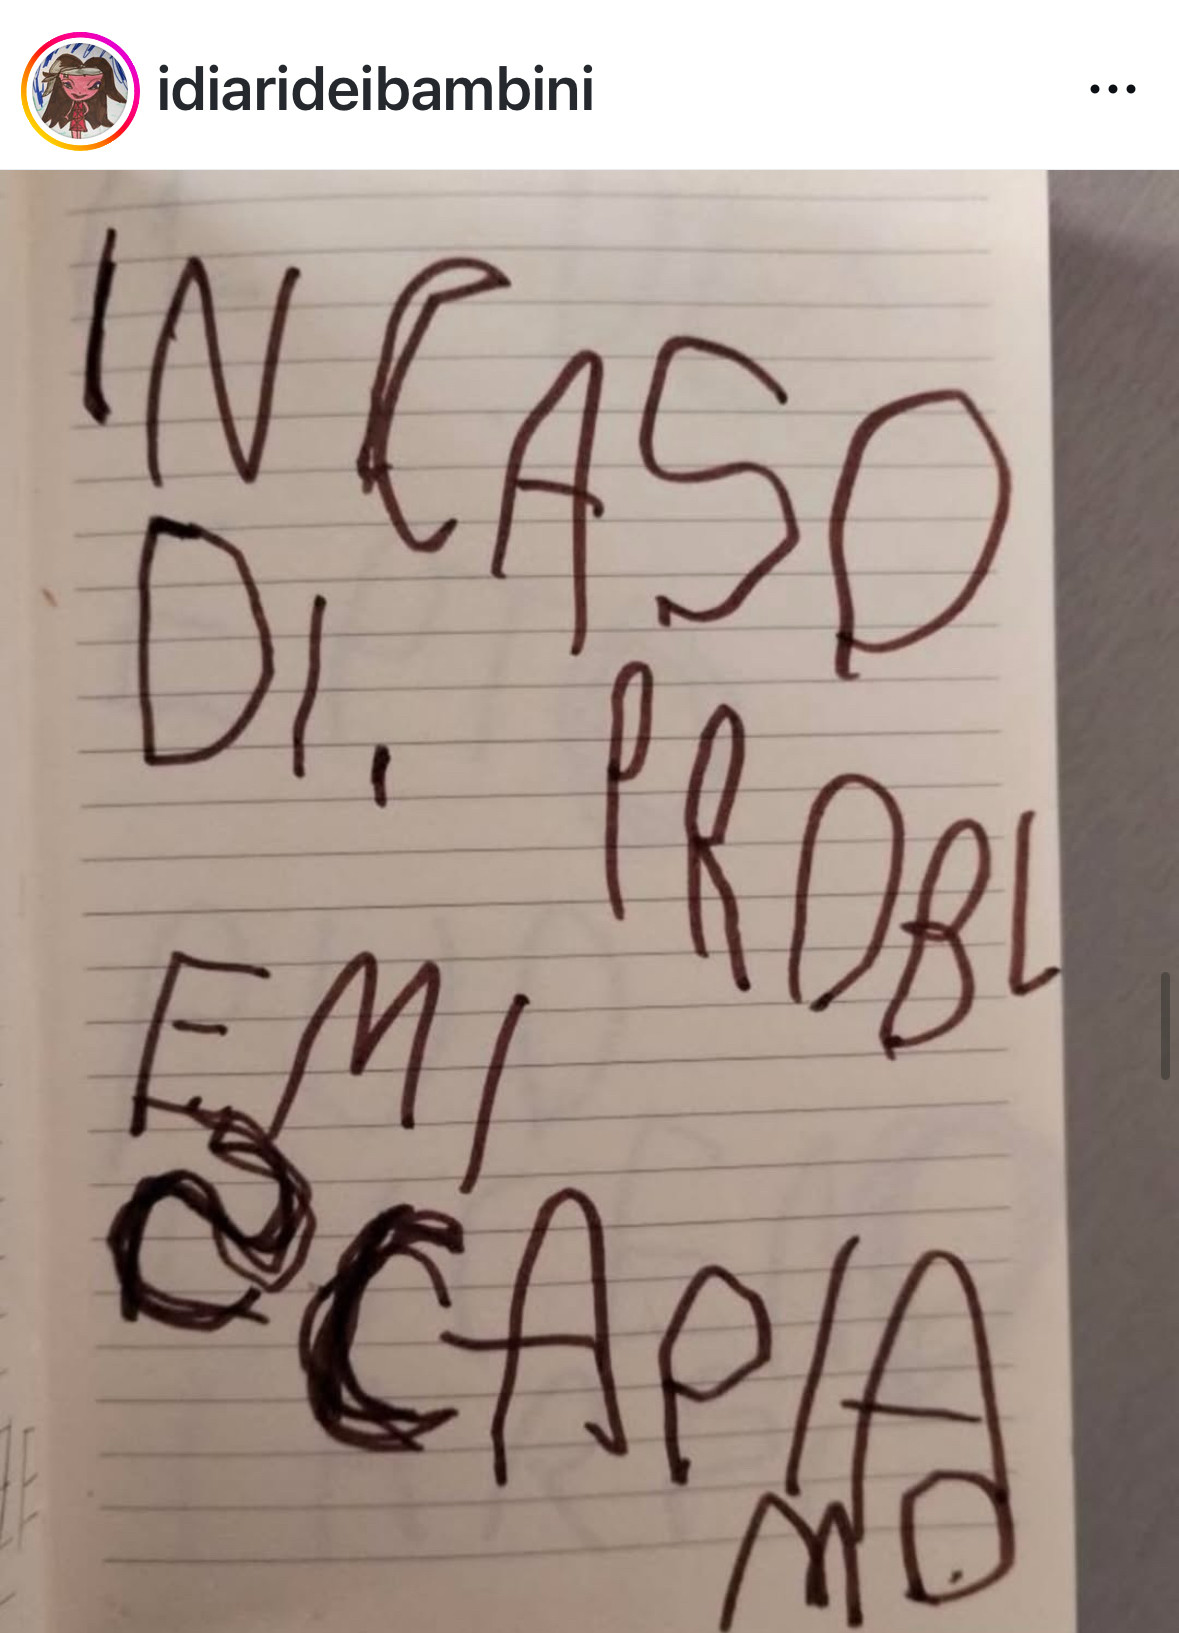 idiarideibambini
IN CASO
DI,
PROBL
EMI
SCAPIA
MO